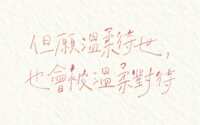 但願溫柔待世,
也會被溫柔對待